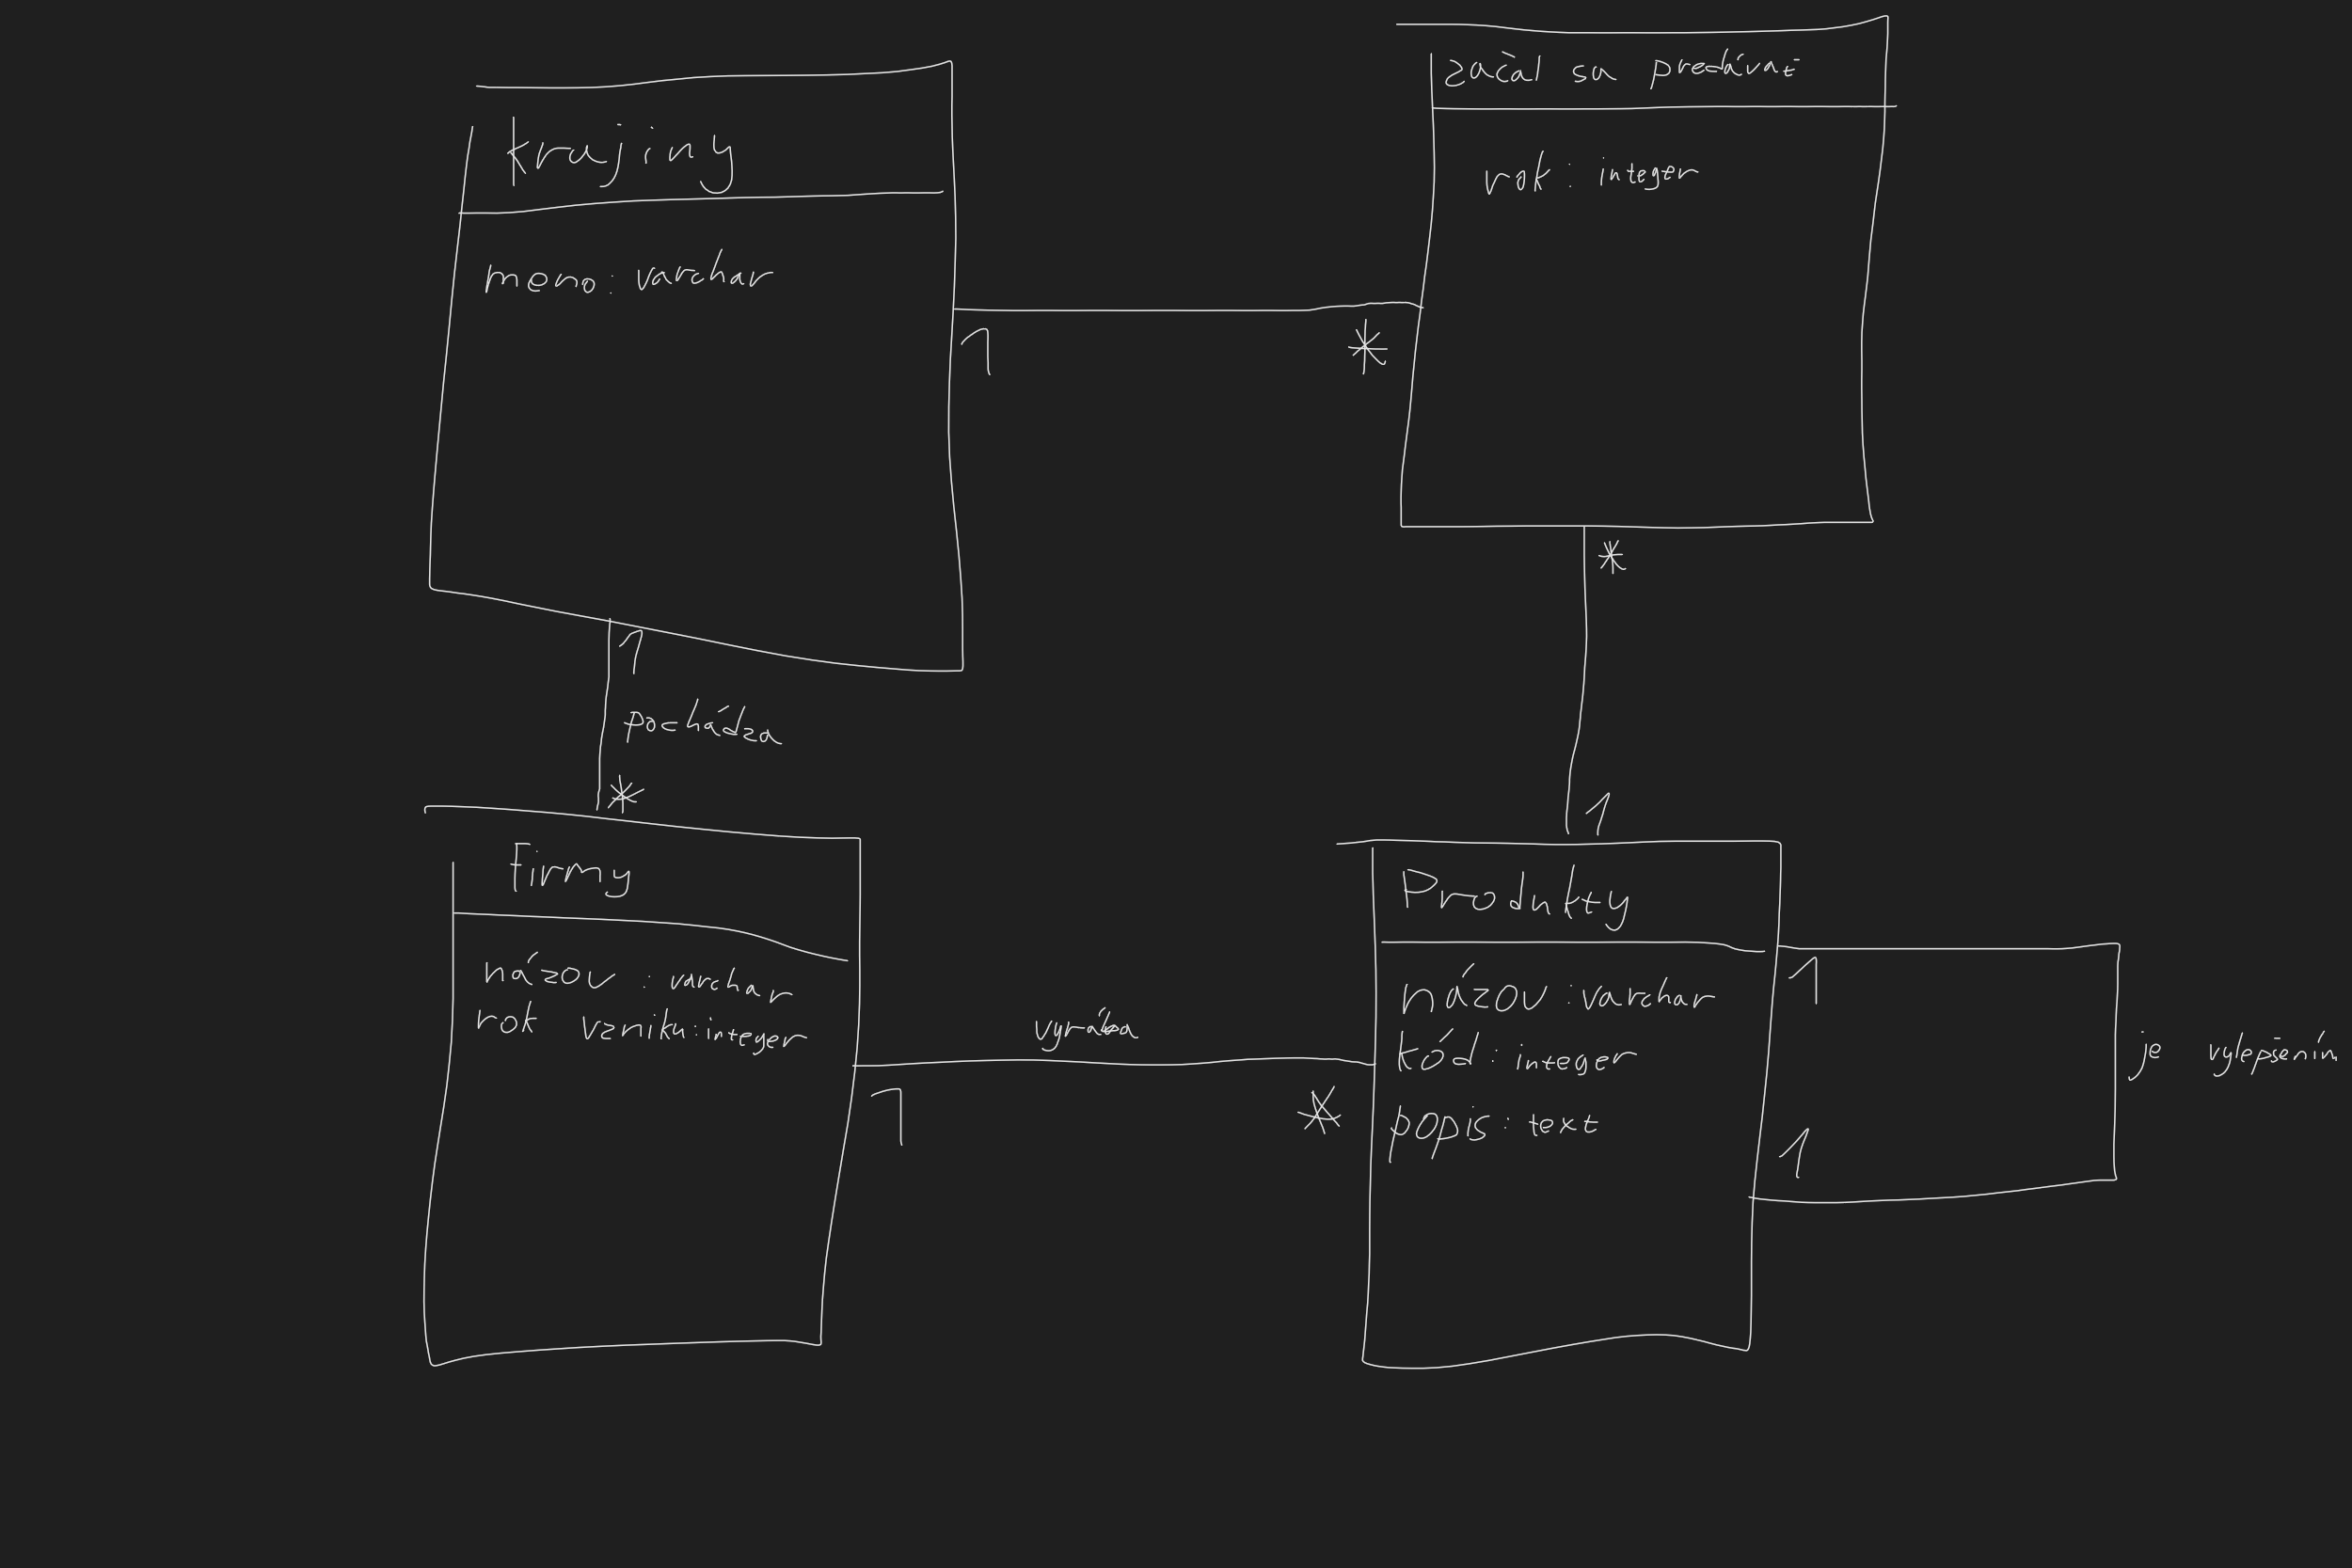 krajiny
meno: varchar
začal sa predávať
rok: integer
1
*
*
1
pochádza
*
1
Firmy
názov: varchar
rok vzniku: integer
vyrába
1
*
Produkty
názov: varchar
kód: integer
popis: text
1
1
je vylepšením